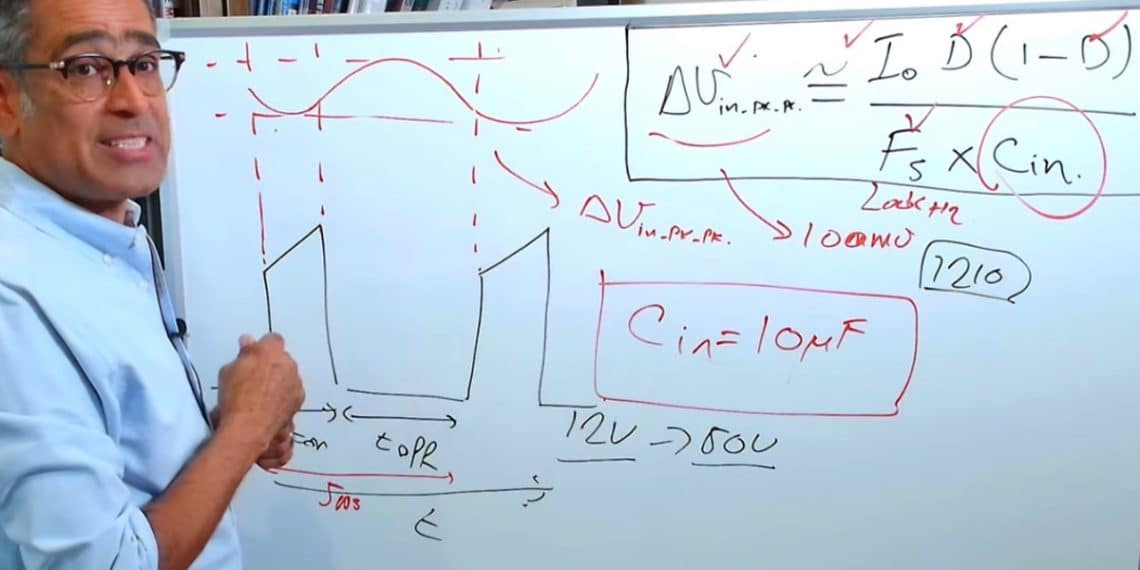 ΔVin-pk-pk. ≅ Io D (1-D)
Fs x Cin.
200kHz
ΔVin-pk-pk. → 100mV
1210
Cin = 10μF
ton
toff
12V → 50V
5μs
t